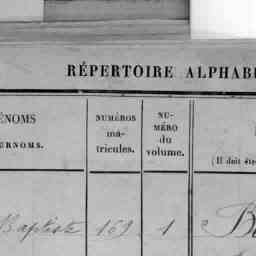 RÉPERTOIRE ALPHABE
ÉNOMS
URNOMS.
NUMÉROS
ma-
tricules.
NU-
MÉRO
du
volume.
(Il doit êtr
Baptiste 169 1